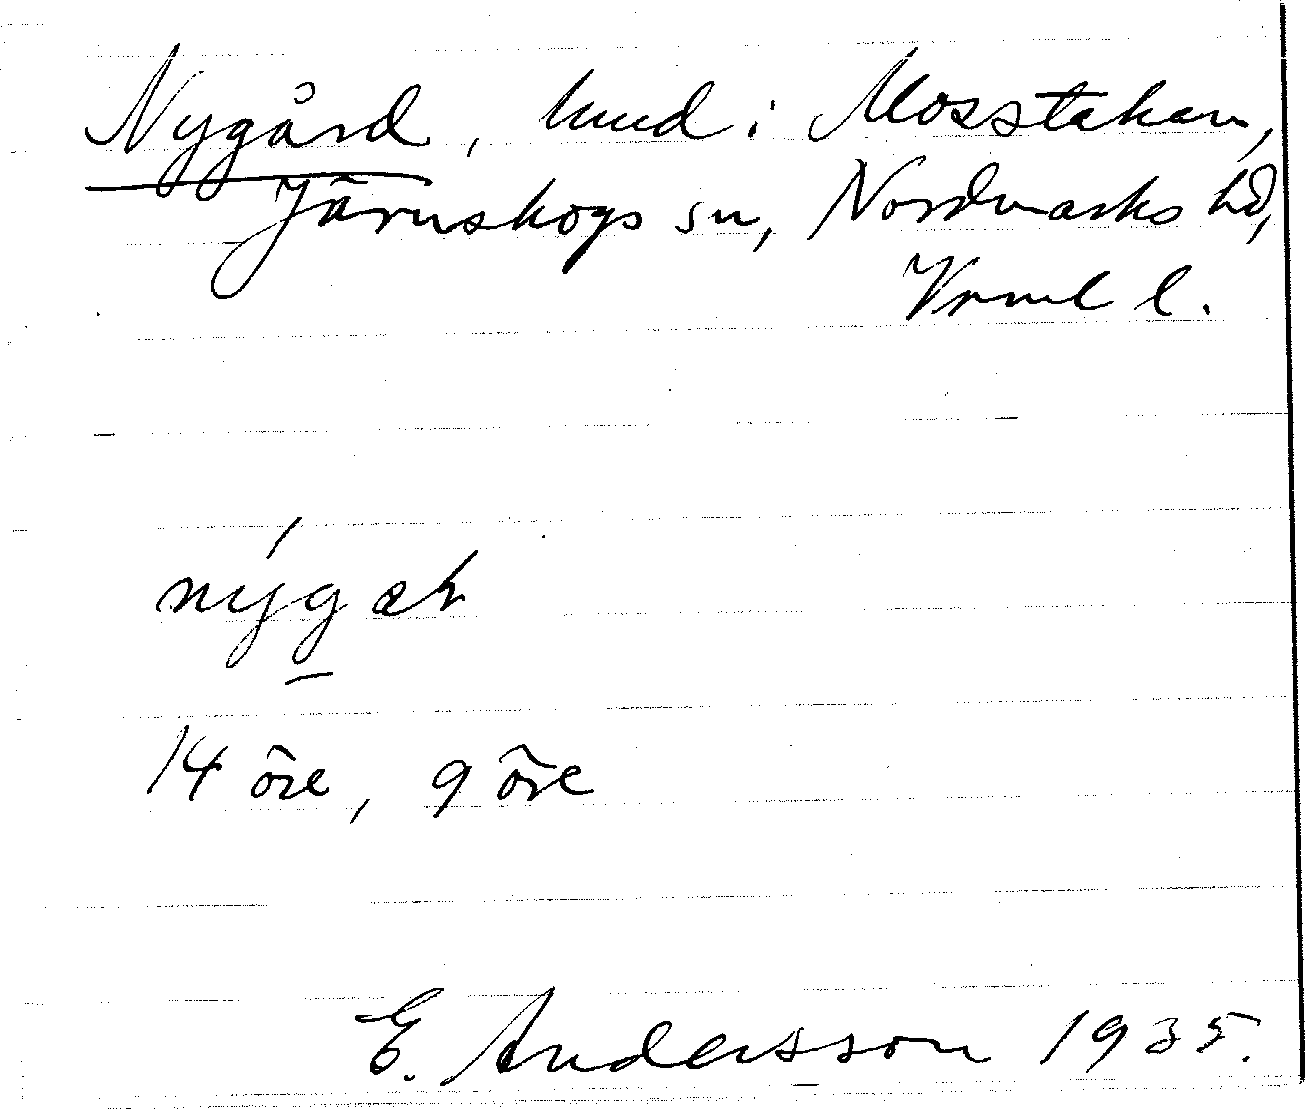 Nygård, hmd i Mosstakan,
Järnskogs sn, Nordmarks hd,
Vrml l.
nýgaʀ
14 öre, 9 öre
E. Andersson 1935.